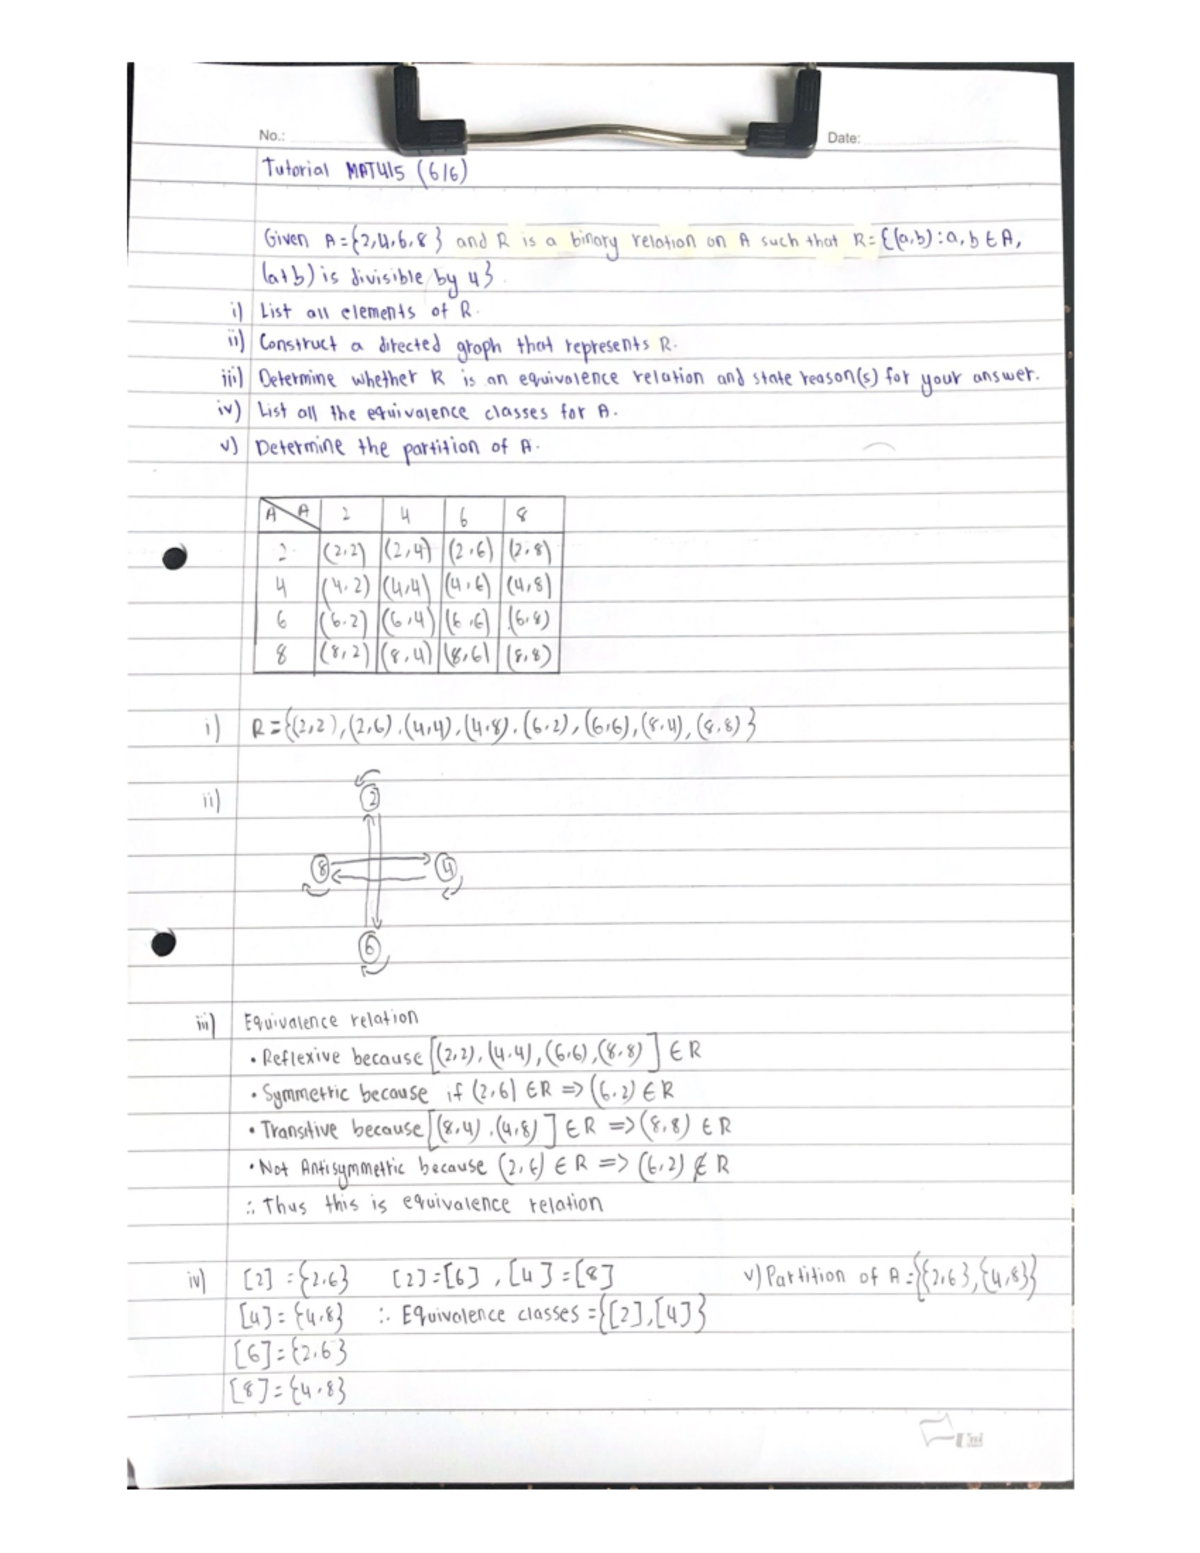 No.:
Date:
Tutorial MAT415 (6/6)
Given A={2,4,6,8} and R is a binary relation on A such that R={(a,b):a,b∈A,
(a+b) is divisible by 4}.
i) List all elements of R.
ii) Construct a directed graph that represents R.
iii) Determine whether R is an equivalence relation and state reason(s) for your answer.
iv) List all the equivalence classes for A.
v) Determine the partition of A.
A A 2 4 6 8
2 (2,2) (2,4) (2,6) (2,8)
4 (4,2) (4,4) (4,6) (4,8)
6 (6,2) (6,4) (6,6) (6,8)
8 (8,2) (8,4) (8,6) (8,8)
i) R={(2,2),(2,6),(4,4),(4,8),(6,2),(6,6),(8,4),(8,8)}
ii)
2
8 4
6
iii) Equivalence relation
• Reflexive because [(2,2),(4,4),(6,6),(8,8)] ∈ R
• Symmetric because if (2,6) ∈ R => (6,2) ∈ R
• Transitive because [(8,4),(4,8)] ∈ R => (8,8) ∈ R
• Not Antisymmetric because (2,6) ∈ R => (6,2) ∉ R
∴ Thus this is equivalence relation
iv) [2] = {2,6} [2]=[6], [4]=[8] v) Partition of A = {{2,6},{4,8}}
[4] = {4,8} ∴ Equivalence classes = {[2],[4]}
[6] = {2,6}
[8] = {4,8}